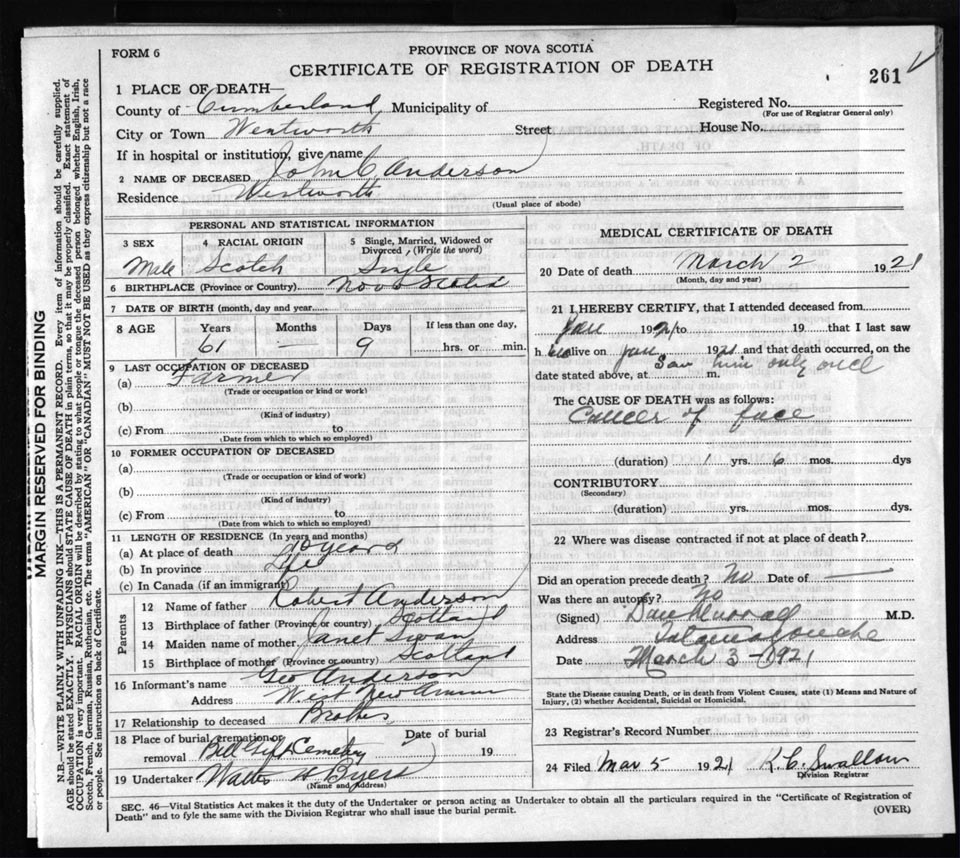 FORM 6
PROVINCE OF NOVA SCOTIA
CERTIFICATE OF REGISTRATION OF DEATH
261
1 PLACE OF DEATH—
County of Cumberland Municipality of
Registered No.
(For use of Registrar General only)
City or Town Wentworth Street House No.
If in hospital or institution, give name
2 NAME OF DECEASED John C Anderson
Residence Wentworth
(Usual place of abode)
PERSONAL AND STATISTICAL INFORMATION
3 SEX Male
4 RACIAL ORIGIN Scotch
5 Single, Married, Widowed or Divorced, (Write the word) Single
6 BIRTHPLACE (Province or Country) Nova Scotia
7 DATE OF BIRTH (month, day and year)
8 AGE Years 61 Months Days 9 If less than one day, hrs. or min.
9 LAST OCCUPATION OF DECEASED
(a) Farmer
(Trade or occupation or kind of work)
(b)
(Kind of industry)
(c) From to
(Date from which to which so employed)
10 FORMER OCCUPATION OF DECEASED
(a)
(Trade or occupation or kind of work)
(b)
(Kind of industry)
(c) From to
(Date from which to which so employed)
11 LENGTH OF RESIDENCE (In years and months)
(a) At place of death years
(b) In province Life
(c) In Canada (if an immigrant)
Parents
12 Name of father Robert Anderson
13 Birthplace of father (Province or country) Scotland
14 Maiden name of mother Janet Swan
15 Birthplace of mother (Province or country) Scotland
16 Informant's name Geo Anderson
Address West New Annan
17 Relationship to deceased Brother
18 Place of burial, cremation or removal Cemetery Date of burial 19
19 Undertaker Watts H Byers
(Name and Address)
MEDICAL CERTIFICATE OF DEATH
20 Date of death March 2 1921
(Month, day and year)
21 I HEREBY CERTIFY, that I attended deceased from
Jan 1921 to 19 that I last saw
h im alive on Jan 1921 and that death occurred, on the
date stated above, at m. Saw him only once
The CAUSE OF DEATH was as follows:
Cancer of face
(duration) 1 yrs. 6 mos. dys
CONTRIBUTORY
(Secondary)
(duration) yrs. mos. dys.
22 Where was disease contracted if not at place of death?
Did an operation precede death? No Date of —
Was there an autopsy? No
(Signed) Dan Murray M.D.
Address Tatamagouche
Date March 3 - 1921
State the Disease causing Death, or in death from Violent Causes, state (1) Means and Nature of
Injury, (2) whether Accidental, Suicidal or Homicidal.
23 Registrar's Record Number
24 Filed Mar 5 1921 K.C. Swallow
Division Registrar
SEC. 46—Vital Statistics Act makes it the duty of the Undertaker or person acting as Undertaker to obtain all the particulars required in the "Certificate of Registration of
Death" and to fyle the same with the Division Registrar who shall issue the burial permit.
(OVER)
MARGIN RESERVED FOR BINDING
N.B.—WRITE PLAINLY WITH UNFADING INK—THIS IS A PERMANENT RECORD. Every item of information should be carefully supplied.
AGE should be stated EXACTLY. PHYSICIANS should STATE CAUSE OF DEATH in plain terms, so that it may be properly classified. Exact statement of
OCCUPATION is very important. RACIAL ORIGIN will be described by stating to what people or tongue the deceased person belonged whether English, Irish,
Scotch, French, German, Russian, Ruthenian, etc. The terms "AMERICAN" OR "CANADIAN" MUST NOT BE USED as they express citizenship but not a race
or people. See instructions on back of Certificate.